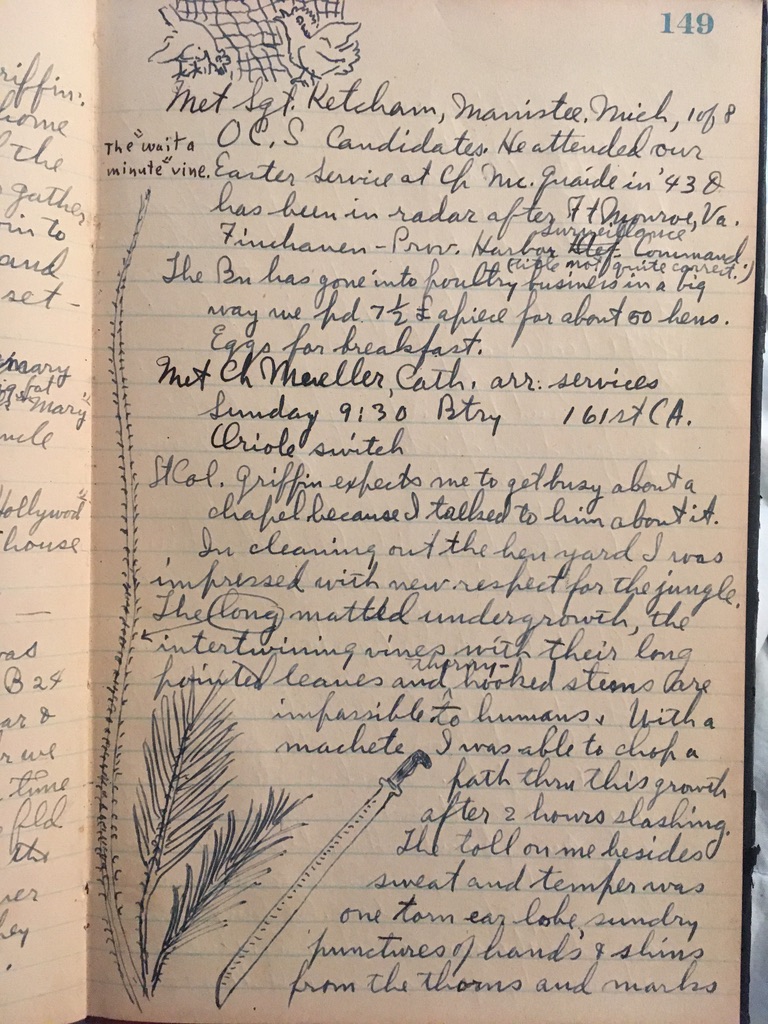 riffin:
home
the
gather
in to
and
set-
Mary
big fat
"Mary"
ncle
Hollywood"
house
was
B 24
ar &
r we
time
fld
the
ver
hey
149
Met Sgt. Ketcham, Manistee, Mich, 1 of 8
O C. S Candidates. He attended our
The "wait a
minute" vine.
Easter Service at Ch Mc. Quaide in '43 &
has been in radar after Ft Monroe, Va.
surveillance
Finchaven - Prov. Harbor Def. Command
(title not quite correct.)
The Bn has gone into poultry business in a big
way we pd. 7½ £ apiece for about 50 hens.
Eggs for breakfast.
Met Ch Mueller, Cath. arr. services
Sunday 9:30 Btry 161st CA.
Oriole switch
Lt Col. Griffin expects me to get busy about a
chapel because I talked to him about it.
In cleaning out the hen yard I was
impressed with new respect for the jungle.
The long matted undergrowth, the
intertwining vines with their long
thorny-
pointed leaves and hooked stems are
impassible to humans. With a
machete I was able to chop a
path thru this growth
after 2 hours slashing.
The toll on me besides
sweat and temper was
one torn ear lobe, sundry
punctures of hands & shins
from the thorns and marks